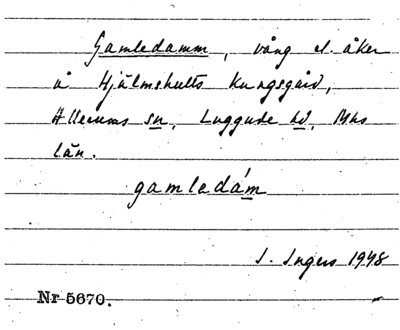 Gamledamm, vång el. åker
å Hjälmshults Kungsgård,
Allerums sn, Luggude hd, Mhs
län.
gamledám
I. Ingers 1948
Nr 5670.